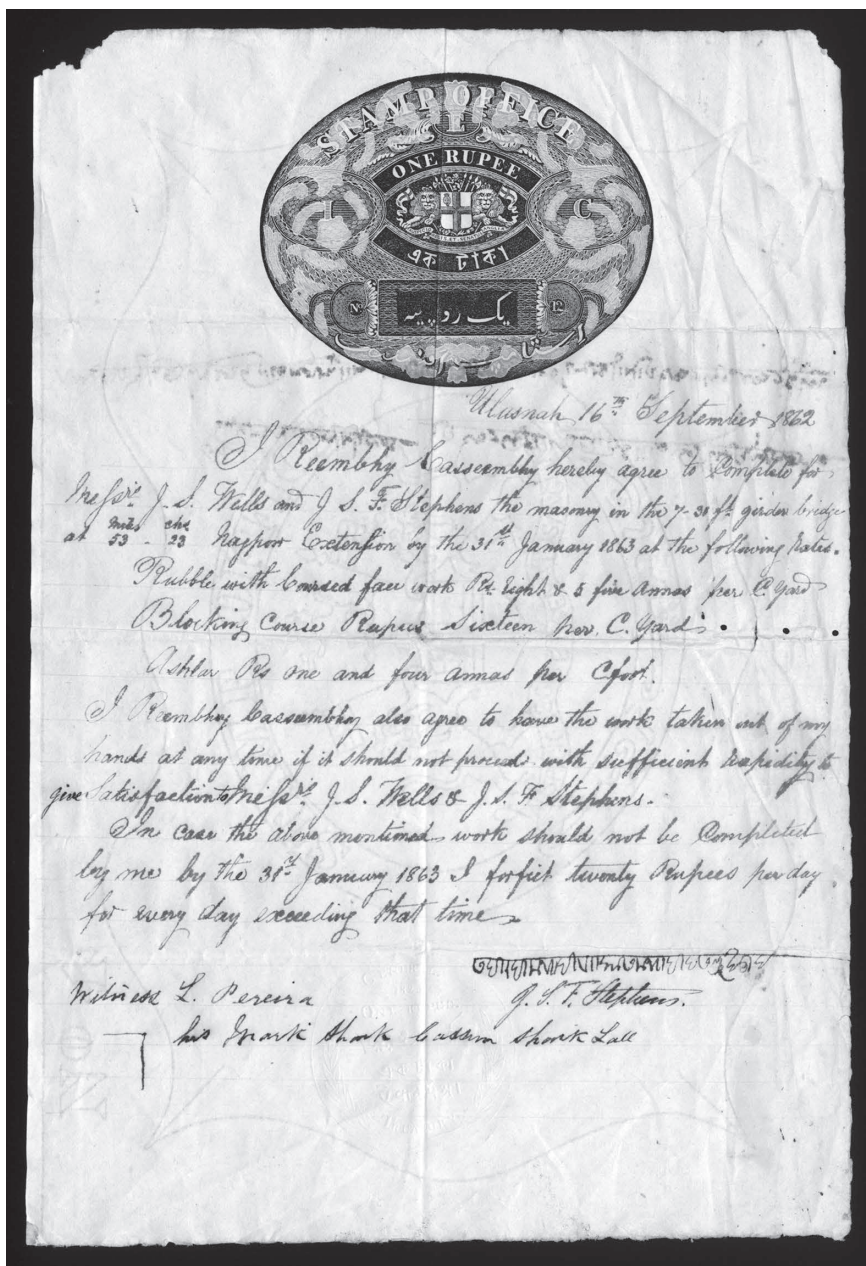 STAMP OFFICE
E
ONE RUPEE
I C
এক টাকা
No 12
یک روپیہ
16th September 1862
I Reembhy Casseembhy hereby agree to Complete for
Messrs. J. S. Wells and J S. F. Stephens the masonry in the 7-30 ft. girder bridge
at Mile 53 - chs 23 Nagpore Extension by the 31st January 1863 at the following Rates.
Rubble with Coursed face work Rs. Eight & 5 five Annas per C. Yard
Blocking Course Rupees Sixteen per. C. Yard
Ashlar Rs one and four annas per Cfoot.
I Reembhoy Casseembhoy also agree to have the work taken out of my
hands at any time if it should not proceed with sufficient rapidity to
give Satisfaction to Messrs. J. S. Wells & J. S. F Stephens.
In case the above mentioned work should not be Completed
by me by the 31st January 1863 I forfiet twenty Rupees per day
for every day exceeding that time
Witness L. Pereira J. S. F. Stephens.
his Mark Shaik Cassim Shaik Lall